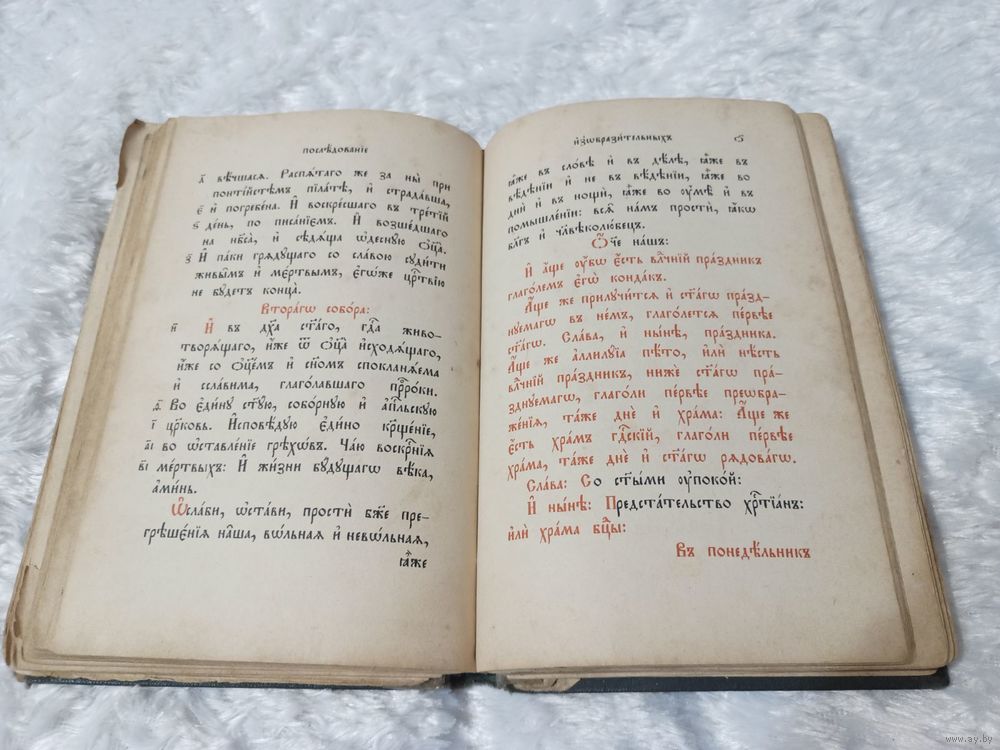 послѣ́дованїе
д҃ вѣчшася. Распѧ́таго же за ны̀ при
понтїйстѣмъ пїла́тѣ, и҆ страда́вша,
є҃ и҆ погребе́на. И҆ воскре́сшаго въ тре́тїй
ѕ҃ де́нь, по писа́нїємъ. И҆ возше́дшаго
на нб҃са̀, и҆ сѣдѧ́ща ѡ҆десну́ю ѻ҆ц҃а̀.
з҃ И҆ па́ки грѧду́щаго со сла́вою суди́ти
живы́мъ и҆ ме́ртвымъ, є҆гѡ́же црⷭ҇твїю
не бу́детъ конца̀.
Втора́гѡ собо́ра:
и҃ И҆ въ дх҃а ст҃а́го, гдⷭ҇а живо-
творѧ́щаго, и҆́же ѿ ѻ҆ц҃а̀ и҆сходѧ́щаго,
и҆́же со ѻ҆ц҃е́мъ и҆ сн҃омъ спокланѧ́ема
и҆ ссла́вима, глаго́лавшаго прⷪ҇ро́ки.
ѳ҃ Во є҆ди́ну ст҃у́ю, собо́рную и҆ а҆пⷭ҇льскую
і҃ цр҃ковь. И҆сповѣ́дую є҆ди́но кр҃ще́нїе,
а҃і во ѡ҆ставле́нїе грѣхѡ́въ. Ча́ю воскрⷭ҇нїѧ
в҃і ме́ртвыхъ: И҆ жи́зни бу́дущагѡ вѣ́ка,
а҆ми́нь.
Ѡ҆сла́би, ѡ҆ста́ви, простѝ бж҃е пре-
грѣше́нїѧ на̑ша, вѡ́льнаѧ и҆ невѡ́льнаѧ,
ꙗ҆̀же
и҆зѡбрази́тельныхъ ѕ҃
ꙗ҆̀же въ сло́вѣ и҆ въ дѣ́лѣ, ꙗ҆̀же въ
вѣ́дѣнїи и҆ не въ вѣ́дѣнїи, ꙗ҆̀же во
днѝ и҆ въ нощѝ, ꙗ҆̀же во ᲂу҆мѣ̀ и҆ въ
помышле́нїи: всѧ̑ на́мъ простѝ, ꙗ҆́кѡ
бл҃гъ и҆ чл҃вѣколю́бецъ.
Ѻ҆́ч҃е на́шъ:
И҆ а҆́ще ᲂу҆́бѡ є҆́сть влⷣчнїй пра́здникъ
глаго́лемъ є҆гѡ̀ конда́къ.
А҆́ще же прилучи́тсѧ и҆ ст҃а́гѡ пра́зд-
нуемагѡ въ не́мъ, глаго́летсѧ пе́рвѣе
ст҃а́гѡ. Сла́ва, и҆ ны́нѣ, пра́здника.
А҆́ще же а҆ллилу́їа пѣ́то, и҆лѝ нѣ́сть
влⷣчнїй пра́здникъ, нижѐ ст҃а́гѡ пра́-
зднуемагѡ, глаго́ли пе́рвѣе преѡбра-
же́нїѧ, та́же днѐ и҆ хра́ма: А҆́ще же
є҆́сть хра́мъ гдⷭ҇скїй, глаго́ли пе́рвѣе
хра́ма, та́же днѐ и҆ ст҃а́гѡ рѧдова́гѡ.
Сла́ва: Со ст҃ы́ми ᲂу҆поко́й:
И҆ ны́нѣ: Предста́тельство хрⷭ҇тїа́нъ:
и҆лѝ хра́ма бц҃ы:
Въ понедѣ́льникъ
www.ay.by